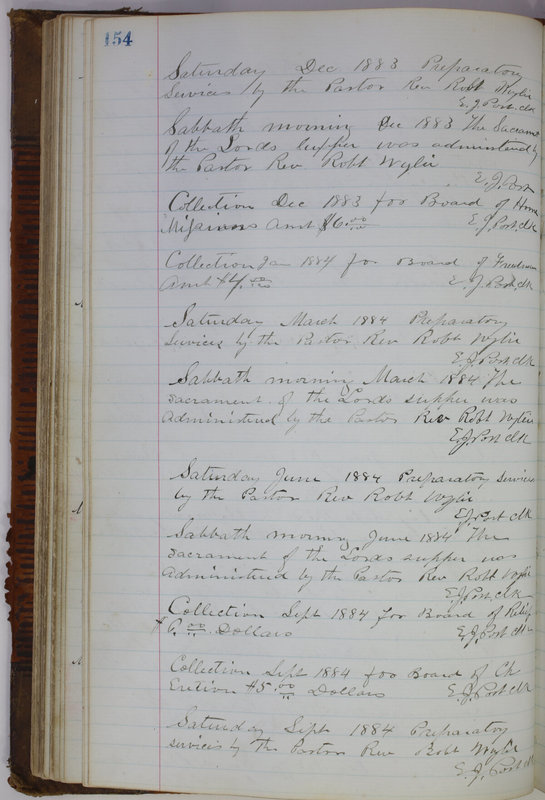 154
Saturday Dec 1883 Preparatory
Services by the Pastor Rev Robt Wylie
E. J. Post, clk
Sabbath morning Dec 1883 The Sacrament
of the Lords supper was administered by
the Pastor Rev Robt Wylie
E. J. Post
Collection Dec 1883 for Board of Home
Missions Amt $6.00 E J Post, clk
Collection Jan 1884 for Board of Freedmen
Amt $4.00 E. J. Post, clk
Saturday March 1884 Preparatory
Services by the Pastor Rev Robt Wylie
E J Post clk
Sabbath morning March 1884 The
sacrament of the Lords supper was
administered by the Pastor Rev Robt Wylie
E. J. Post clk
Saturday June 1884 Preparatory Services
by the Pastor Rev Robt Wylie
E J Post clk
Sabbath morning June 1884 The
sacrament of the Lords supper was
administered by the Pastor Rev Robt Wylie
E J Post, clk
Collection Sept 1884 for Board of Relief
$6.00 Dollars E. J. Post clk
Collection Sept 1884 for Board of Ch
Erction $5.00 Dollars E J Post clk
Saturday Sept 1884 Preparatory
services by the Pastor Rev Robt Wylie
E. J. Post clk